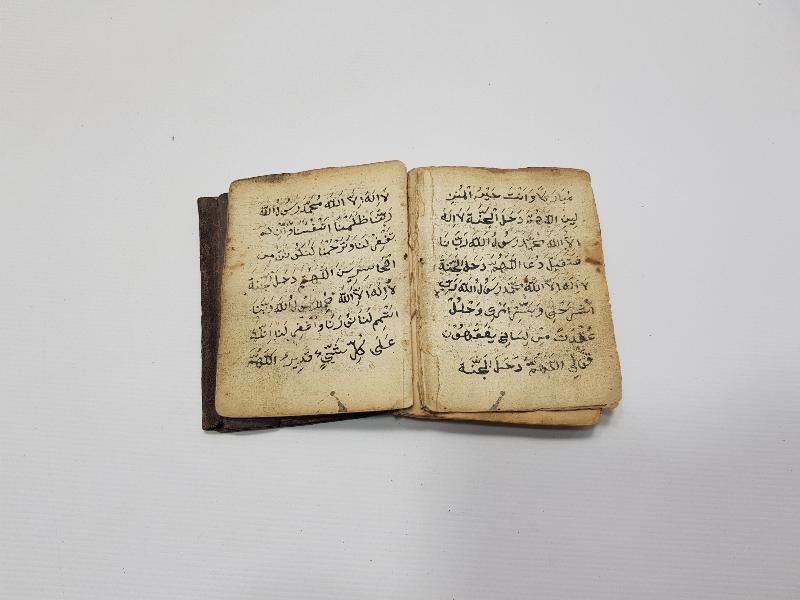 مباركا وانت خير المنز
لين اللهم دخل الجنة لا اله
الا الله محمد رسول الله ربنا
فتقبل دعا اللهم دخل الجنة
لا اله الا الله محمد رسول الله رب
اشرحلي ويسر امري وحلل
عقدت من لساني يفقهون
قولي اللهم دخل الجنة
لا اله الا الله محمد رسول الله
ربنا ظلمنا انفسنا وان لم
تغفرلنا وترحمنا لنكونن من
الخاسرين اللهم دخل الجنة
لا اله الا الله محمد رسول الله ربنا
اتمم لنا نورنا واغفرلنا انك
على كل شيء قدير اللهم